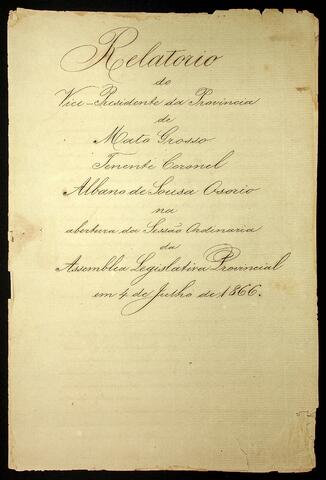 Relatorio
do
Vice-Presidente da Provincia
de
Mato Grosso
Tenente Coronel
Albano de Sousa Osorio
na
abertura da Sessão Ordinaria
da
Assemblea Legislativa Provincial
em 4 de Julho de 1866.